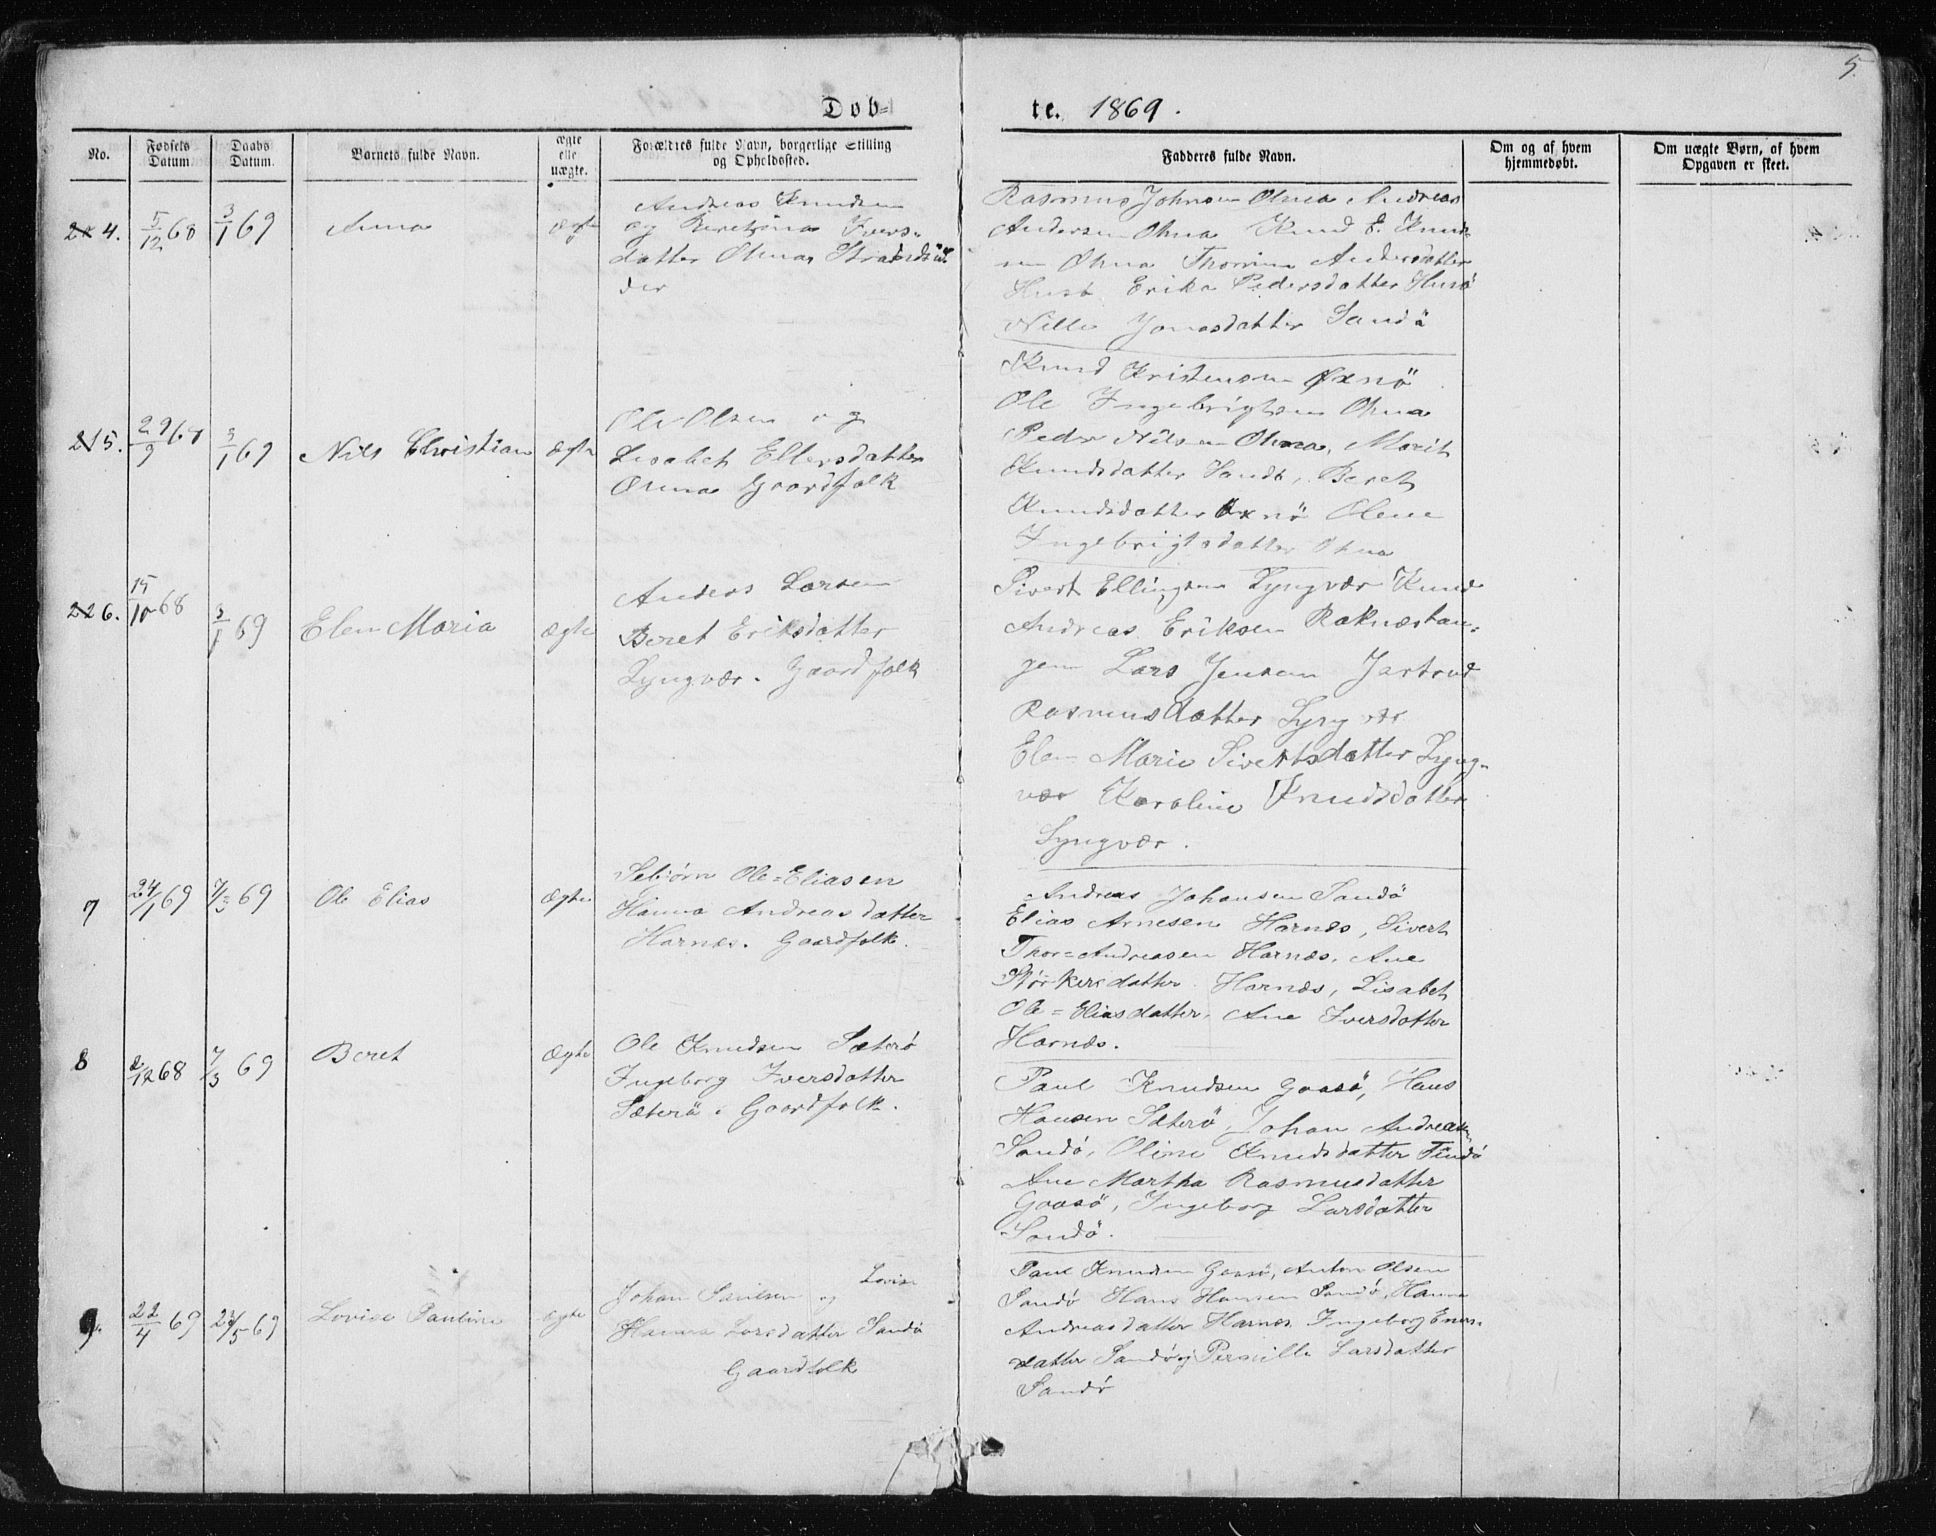 5.
Döb-
te. 1869.
No.
Fødsels Datum.
Daabs Datum.
Barnets fulde Navn.
ægte elle uægte.
Forældres fulde Navn, borgerlige Stilling og Opholdssted.
Fadderes fulde Navn.
Om og af hvem hjemmedøbt.
Om uægte Børn, af hvem Opgaven er skeet.
4. 5/12 68 3/1 69 Anna ægte
Andreas Knudsen
og Beretjina Ivers-
datter Ohna,
der
Rasmus Johnsen Ohna Andreas
Andersen Ohna Knud E. Knud-
sen Ohna Andersdatter
Erika Pedersdatter Husö
Nille Jonasdatter Sandö
5. 29/9 68 3/1 69 Nils Christian ægte
Ole Olsen og
Lisabet Ellersdatter
Gaardfolk
Knud Kristensen Øxnö
Ole Ingebrigtsen Ohna
Peder Nilsen Ohna, Marit
Knudsdatter Sandö, Beret
Knudsdatter Öxnö Olene
Ingebrigtsdatter Ohna
6. 15/10 68 3/1 69 Elen Maria ægte
Anders Larsen
Beret Eriksdatter
Lyngvær. Gaardfolk
Sivert Ellingsen Lyngvær Knud
Andreas Eriksen Raknæstan-
gen Lars Jensen Jartrud
Rasmusdatter Lyngvær
Elen Marie Sivertsdatter Lyng-
vær Karoline Knudsdatter
Lyngvær.
7 24/1 69 7/3 69 Ole Elias ægte
Sebjørn Ole=Eliasen
Hanna Andreasdatter
Harnes. Gaardfolk.
Andreas Johansen Sandö
Elias Arnesen Harnes, Sivert
Thor=Andreasen Harnes, Ane
Størkersdatter Harnes, Lisabet
Ole=Eliasdatter, Ane Iversdatter
Harnes.
8 2/12 68 7/3 69 Beret ægte
Ole Knudsen Sæterø
Ingeborg Iversdatter
Sæterö. Gaardfolk.
Paul Knudsen Gaasö, Hans
Hansen Sæterö, Johan Andreasen
Sandö, Oline Knudsdatter
Ane Martha Rasmusdatter
Gaasö, Ingeborg Larsdatter
Sandö.
9. 22/4 69 23/5 69 Lovise Pauline ægte
Lovise
Johan og
Hanna Larsdatter Sandö
Gaardfolk
Paul Knudsen Gaasö, Anton Olsen
Sandö Hans Hansen Sandö, Hanna
Andreasdatter Harnes, Ingeborg
datter Sandö, Pernille Larsdatter
Sandö